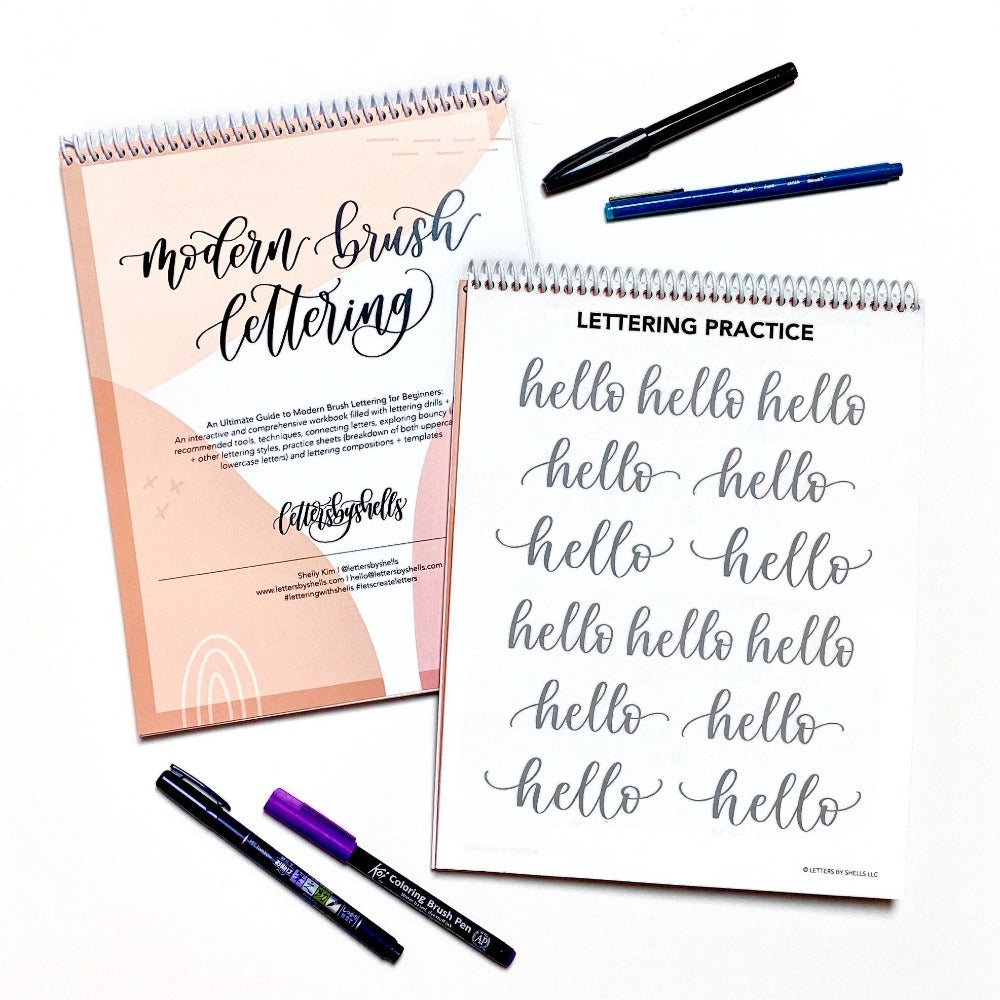 modern brush
lettering
An Ultimate Guide to Modern Brush Lettering for Beginners:
An interactive and comprehensive workbook filled with lettering drills +
recommended tools, techniques, connecting letters, exploring bouncy
+ other lettering styles, practice sheets (breakdown of both
lowercase letters) and lettering compositions + templates
lettersbyshells
Shelly Kim | @lettersbyshells
www.lettersbyshells.com | hello@lettersbyshells.com
#letteringwithshells #letscreateletters
LETTERING PRACTICE
hello hello hello
hello hello
hello hello
hello hello hello
hello hello
hello hello
© LETTERS BY SHELLS LLC
Koi Coloring Brush Pen
AP